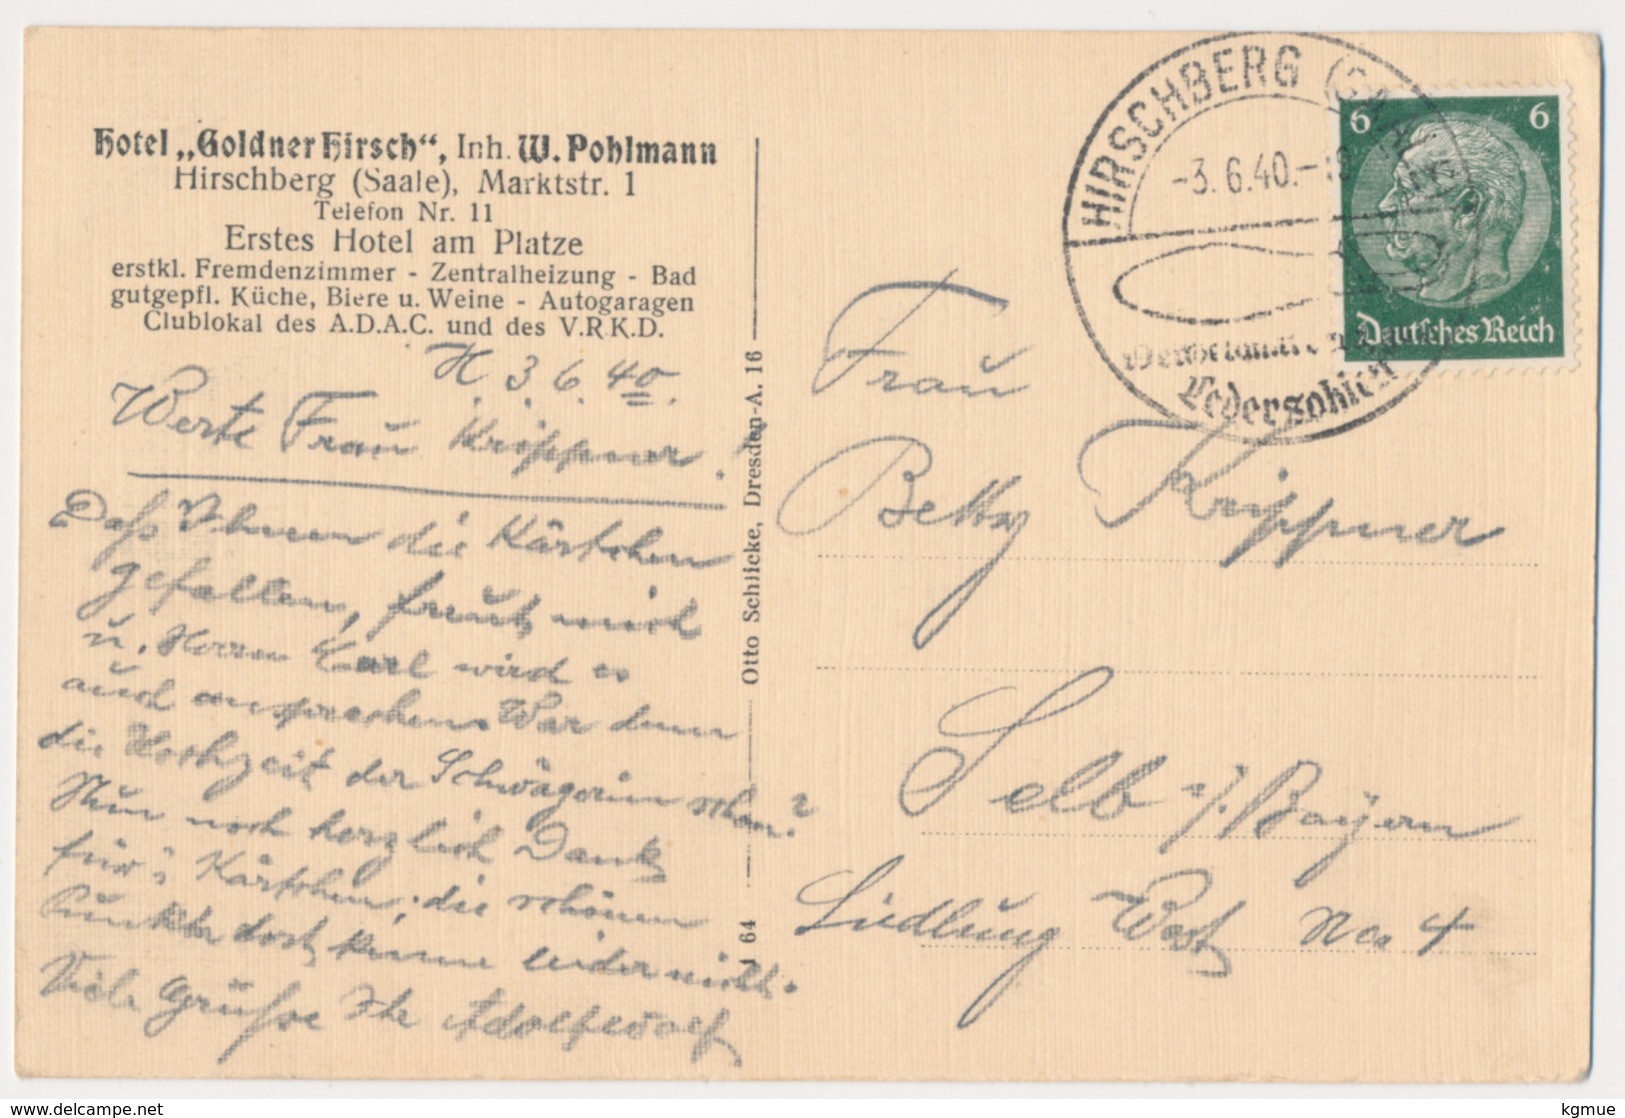 Hotel „Goldner Hirsch“, Inh. W. Pohlmann
Hirschberg (Saale), Marktstr. 1
Telefon Nr. 11
Erstes Hotel am Platze
erstkl. Fremdenzimmer - Zentralheizung - Bad
gutgepfl. Küche, Biere u. Weine - Autogaragen
Clublokal des A.D.A.C. und des V.R.K.D.
H. 3.6.40.
Werte Frau Krippner!
Daß Ihnen die Kärtchen
gefallen, freut mich
u. Herrn Karl wird es
auch ansprechen. War denn
die Hochzeit der Schwägerin schon?
Nun noch herzlich Dank
für i Kärtchen; die schönen
Punkte doch kenne leider nicht.
Viele Grüsse Ihr Adolf Wolf
Otto Schlicke, Dresden-A. 16
64
HIRSCHBERG (SAALE)
-3.6.40.-19
Ledersohlen
6 6
Deutsches Reich
Frau
Betty Krippner
Selb i/Bayern
Siedlung West No. 4
kgmue